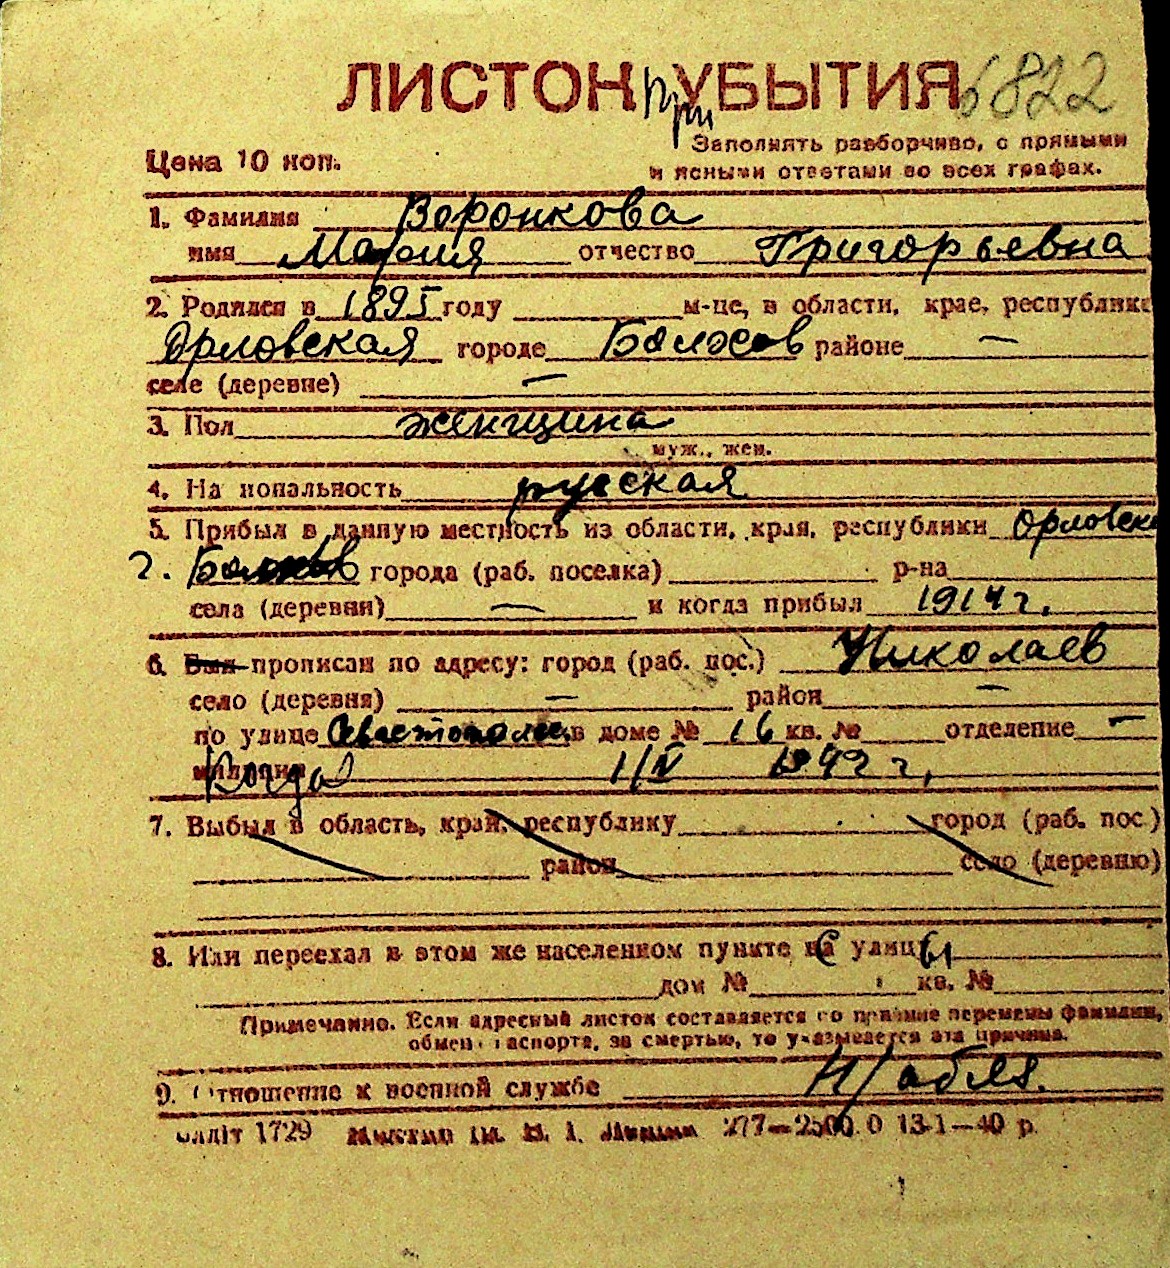 ЛИСТОК при УБЫТИЯ 6822
Цена 10 коп.
Заполнять разборчиво, с прямыми
и ясными ответами во всех графах.
1. Фамилия Воронкова
имя Мария отчество Григорьевна
2. Родился в 1895 году м-це, в области, крае, республике
Орловская городе Болхов районе —
селе (деревне) —
3. Пол женщина
муж., жен.
4. На нональность русская
5. Прибыл в данную местность из области, края, республики Орловско
г. Болхов города (раб. поселка) р-на
села (деревни) — и когда прибыл 1914 г.
6. Был прописан по адресу: город (раб. пос.) Николаев
село (деревня) — район —
по улице в доме № 16 кв. № отделение —
милиции Когда 1/V 1942 г.
7. Выбыл в область, край, республику город (раб. пос.)
район село (деревню)
8. Или переехал в этом же населенном пункте на с улицы
дом № кв. №
Примечание. Если адресный листок составляется по причине перемены фамилии,
обмен паспорта, за смертью, то указывается эта причина.
9. Отношение к военной службе
1729 277—2500.0 13-1—40 р.